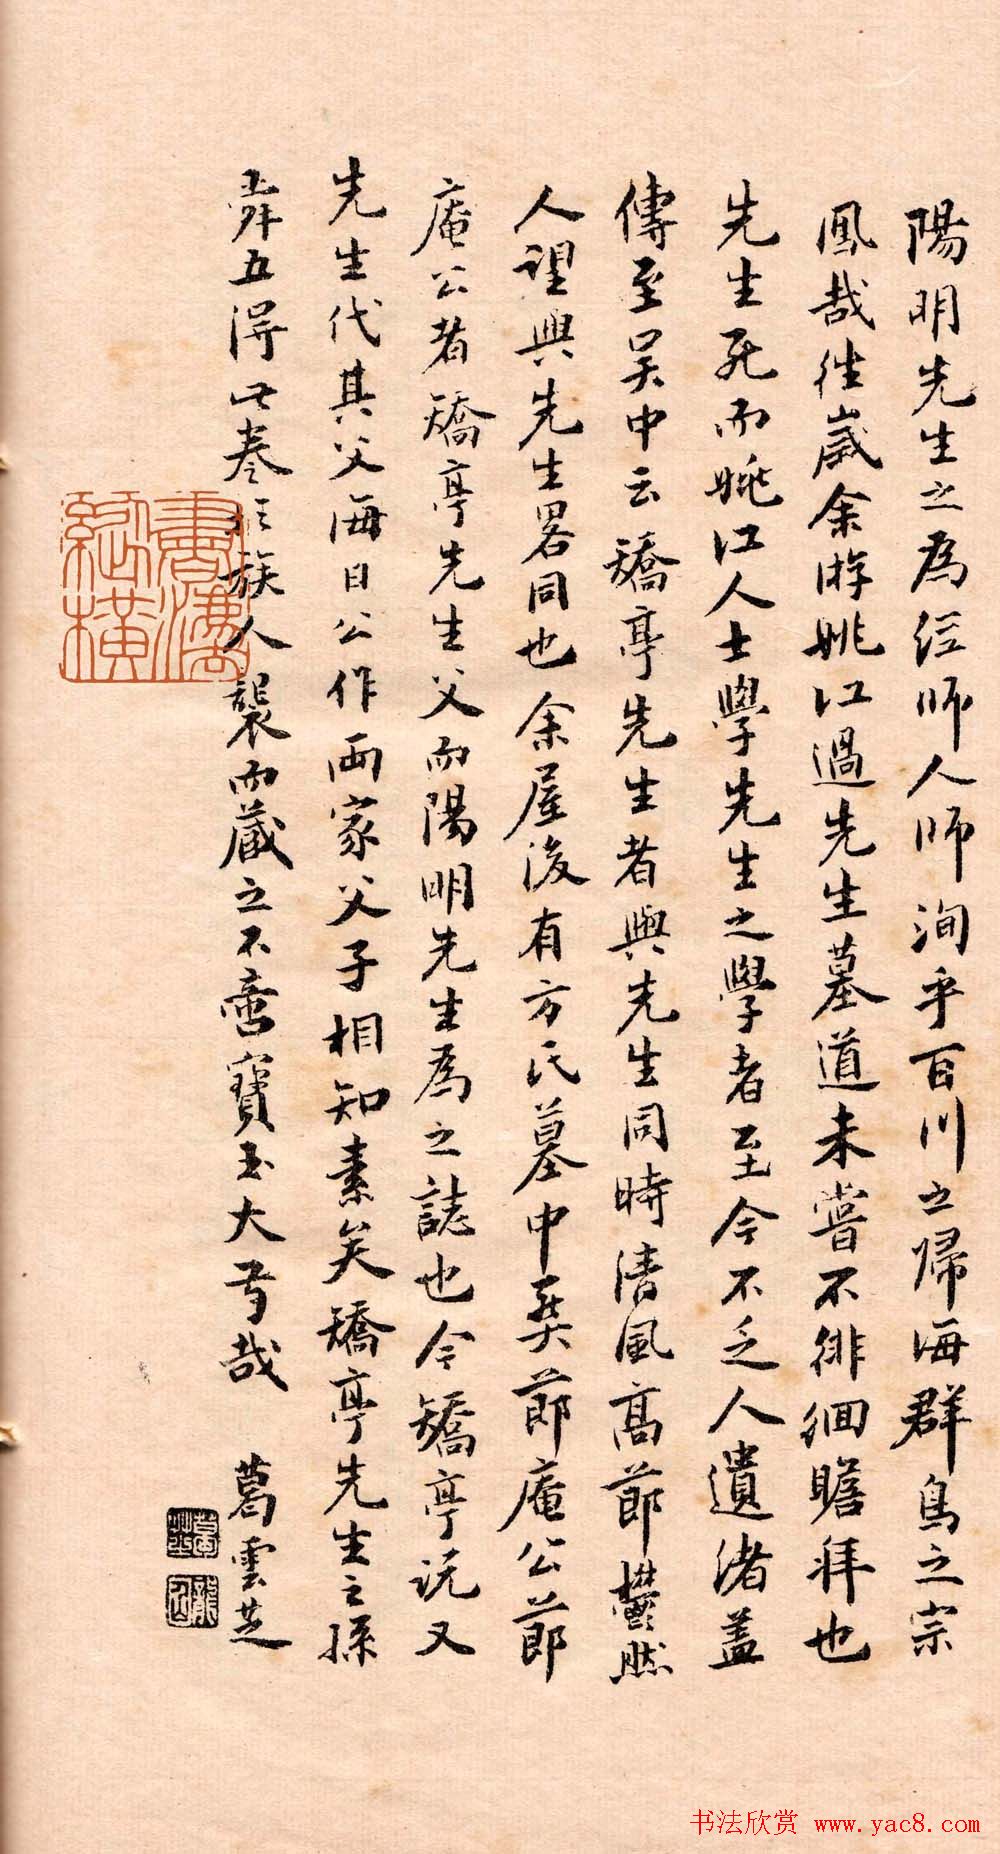 陽明先生之為經師人師洵乎百川之歸海群鳥之宗
鳳哉往歲余游姚江過先生墓道未嘗不徘徊瞻拜也
先生死而姚江人士學先生之學者至今不乏人遺渚蓋
傳至吴中云矯亭先生者與先生同時清風高節鬱然
人望與先生畧同也余屋後有方氏墓中葬節庵公節
庵公者矯亭先生父而陽明先生為之誌也今矯亭説又
先生代其父海日公作兩家父子相知素矣矯亭先生之孫
舜五得此卷於族人襲而藏之不啻寳玉大弓哉 葛雲芝
書譜縱橫
书法欣赏 www.yac8.com